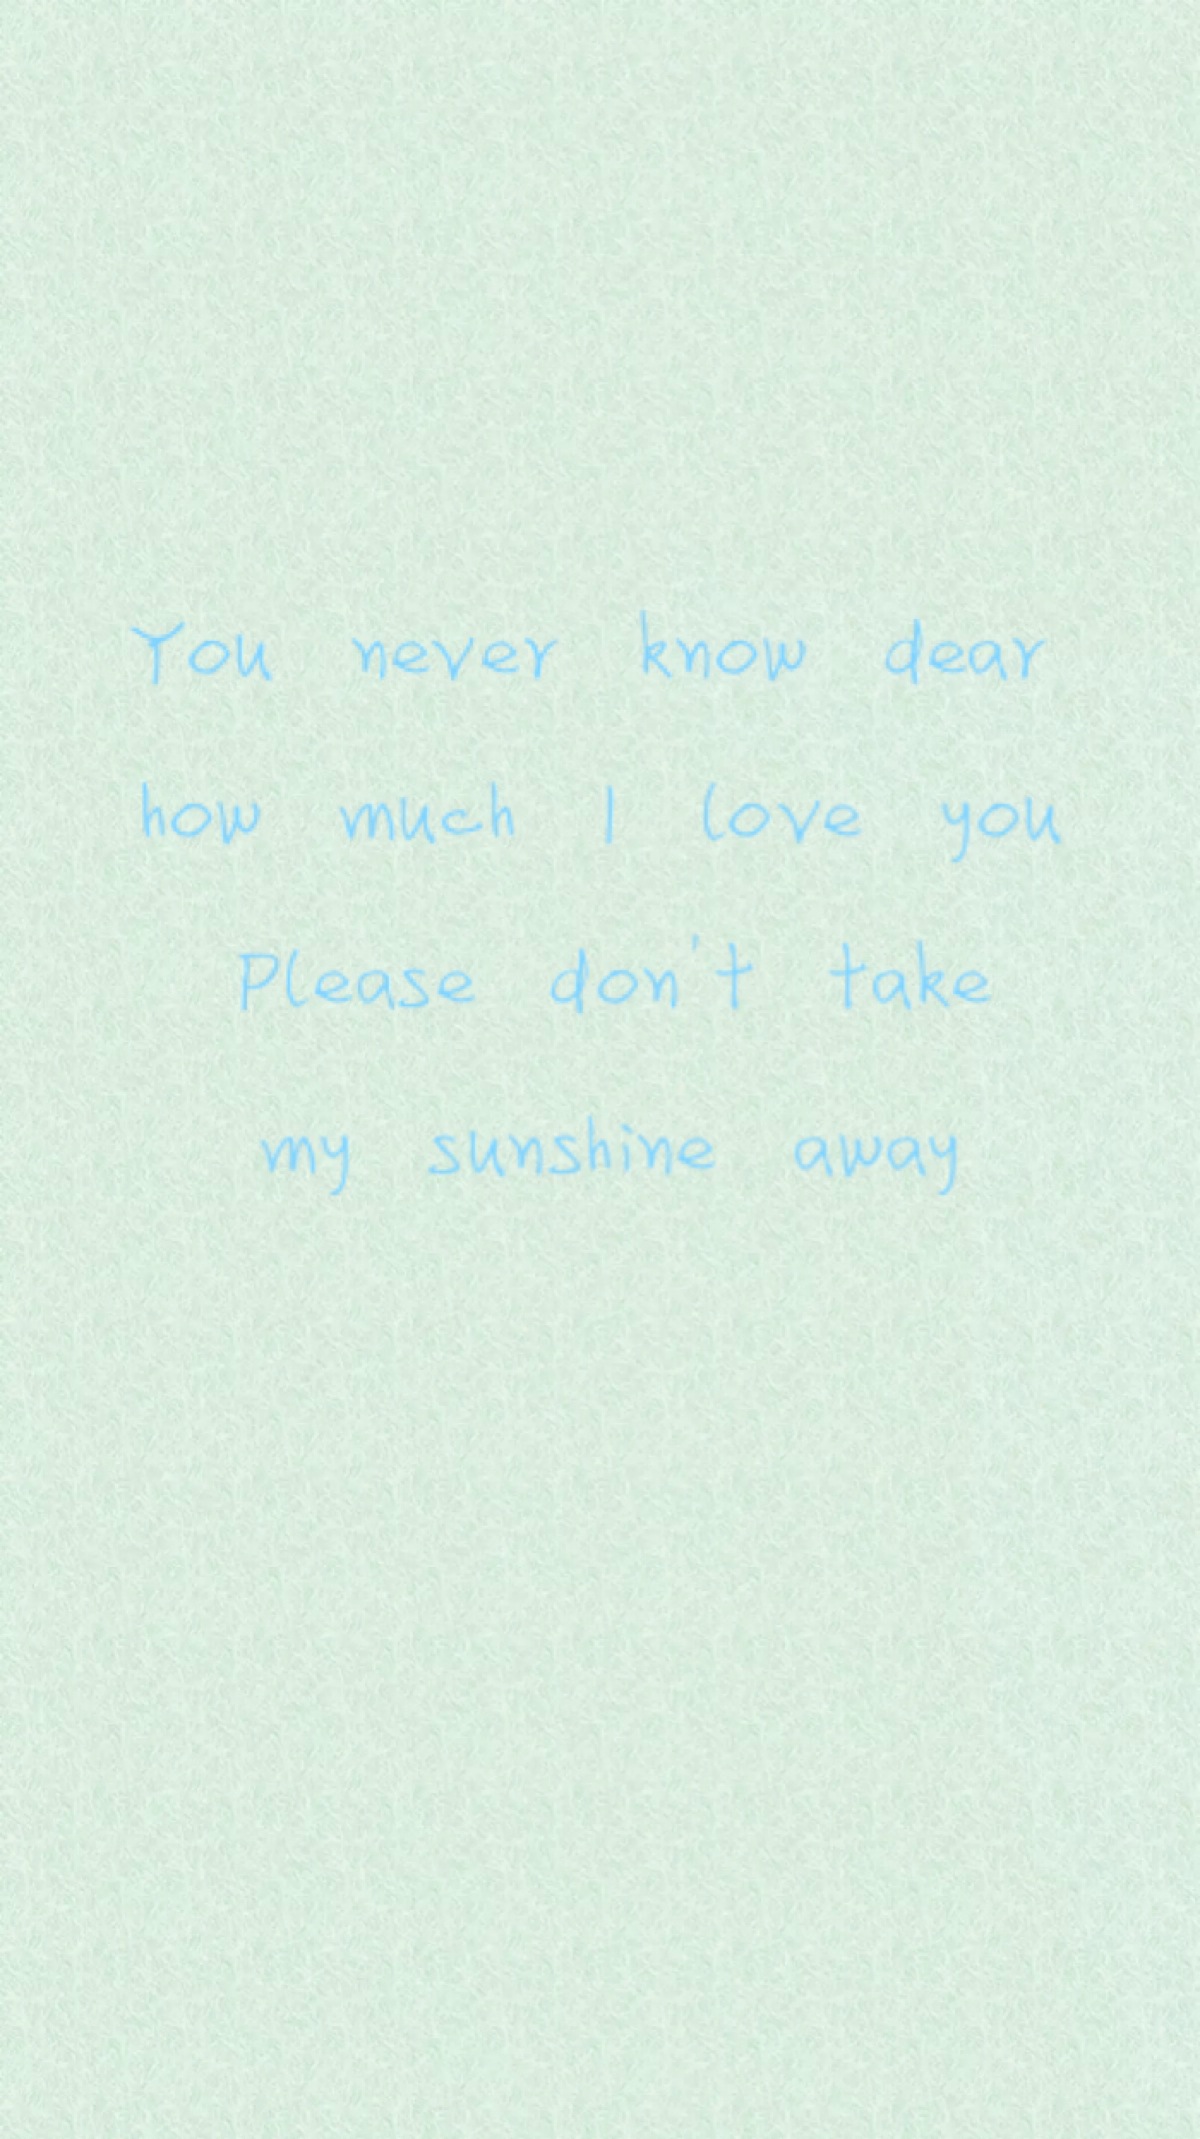 You never know dear
how much I love you
Please don't take
my sunshine away